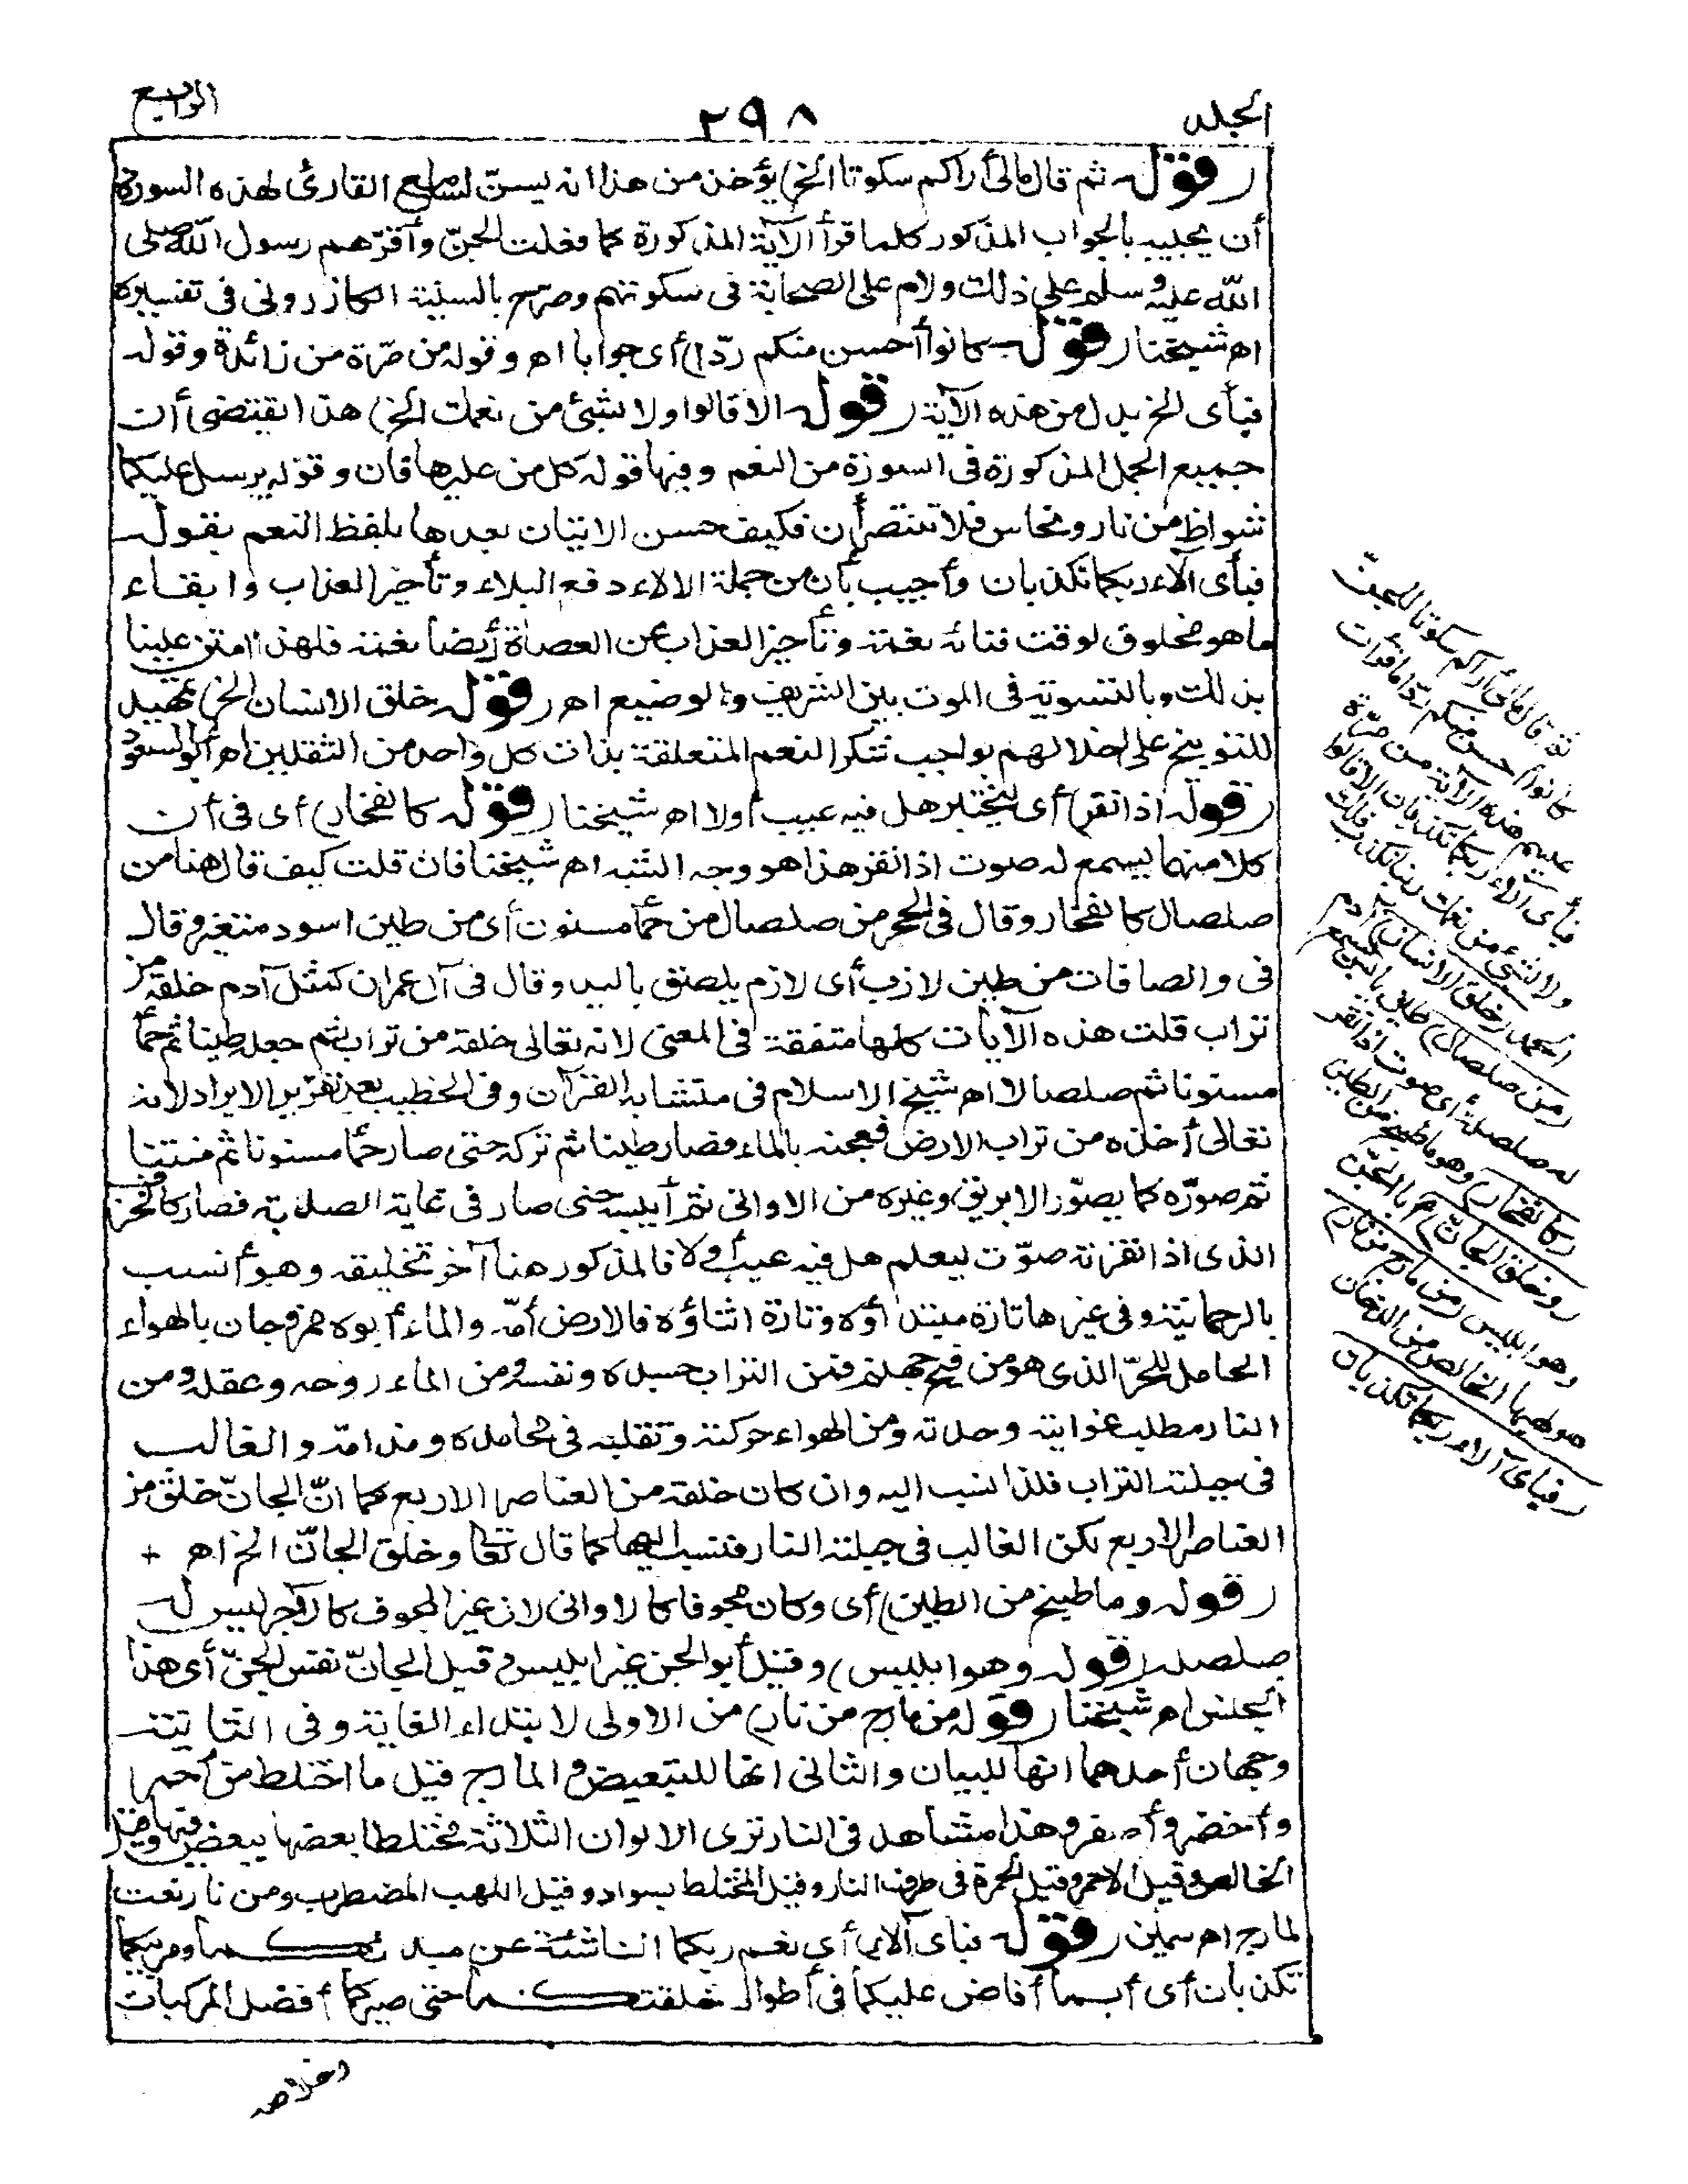 المجلد
٢٩٨
الرابع
(قوله ثم قال مالى أراكم سكوتا الخ) يؤخذ من هذا انه يسنّ لسامع القارئ لهذه السورة
أن يجيبه بالجواب المذكور كلما قرأ الآية المذكورة كما فعلت الجنّ وأقرّهم رسول الله صلى
الله عليه وسلم على ذلك ولام على الصحابة فى سكوتهم وصرّح بالسنية الكازرونى فى تفسيره
اه شيخنا (قوله كانوا أحسن منكم ردّا) أى جوابا اه وقوله من مرّة من زائدة وقوله
فبأى الخ بدل من هذه الآية (قوله الا قالوا ولا بشئ من نعمك الخ) هذا يقتضى أن
جميع الجمل المذكورة فى السورة من النعم وفيها قوله كل من عليها فان وقوله يرسل عليكما
شواظ من نار ونحاس فلا تنتصران فكيف حسن الاتيان بعدها بلفظ النعم بقوله
فبأى آلاء ربكما تكذبان وأجيب بأن من جملة الالاء دفع البلاء وتأخير العذاب وابقاء
ما هو مخلوق لوقت فنائه نعمة وتأخير العذاب عن العصاة أيضا نعمة فلهذا امتن علينا
بذلك وبالتسوية فى الموت بين الشريف والوضيع اه (قوله خلق الانسان الخ) تمهيد
للتوبيخ على اخلالهم بواجب شكر النعم المتعلقة بذات كل واحد من الثقلين اه أبو السعود
(قوله اذا نقر) أى يختبر هل فيه عيب أو لا اه شيخنا (قوله كالفخار) أى فى أن
كلا منهما يسمع له صوت اذا نقر هذا هو وجه الشبه اه شيخنا فان قلت كيف قال هنا من
صلصال كالفخار وقال فى الحجر من صلصال من حمأ مسنون أى من طين اسود متغير وقال
فى والصافات من طين لازب أى لازم يلصق باليد وقال فى آل عمران كمثل آدم خلقه من
تراب قلت هذه الآيات كلها متفقة فى المعنى لانه تعالى خلقه من تراب ثم جعله طينا ثم حمأ
مسنونا ثم صلصالا اه شيخ الاسلام فى متشابه القرآن وفى الخطيب بعد تقرير الايراد لانه
تعالى أخذه من تراب الارض فعجنه بالماء فصار طينا ثم تركه حتى صار حمأ مسنونا ثم منتنا
ثم صوّره كما يصوّر الابريق وغيره من الاوانى ثم أيبسه حتى صار فى غاية الصلابة فصار كالخزف
الذى اذا نقرته صوّت ليعلم هل فيه عيب أو لا فالمذكور هنا آخر تخليقه وهو أنسب
بالرحمانية وفى غيرها تارة مبتدأوه وتارة اثناؤه فالارض أمّه والماء أبوه ممزوجان بالهواء
الحامل للحرّ الذى هو من فيح جهنم فمن التراب جسده ونفسه ومن الماء روحه وعقله ومن
النار مطلب غوايته وحدته ومن الهواء حركته وتقلبه فى محامده ومذامه والغالب
فى جبلته التراب فلذا نسب اليه وان كان خلقه من العناصر الاربع كما انّ الجانّ خلق من
العناصر الاربع لكن الغالب فى جبلته النار فنسب اليها كما قال تعا وخلق الجانّ الخ اه +
(قوله وما طبخ من الطين) أى وكان مجوفا كالاوانى لان غير المجوف كالآجر ليس له
صلصلة (قوله وهو ابليس) وقيل أبو الجن غير ابليس وقيل الجانّ نفس الجنّ أى هذا
الجنس اه شيخنا (قوله من مارج من نار) من الاولى لابتداء الغاية وفى الثانية
وجهان أحدهما انها للبيان والثانى انها للتبعيض والمارج قيل ما اختلط من أحمر
وأخضر وأصفر وهذا مشاهد فى النار ترى الالوان الثلاثة مختلطا بعضها ببعض فيها وقيل
الخالص وقيل الاحمر وقيل الحمرة فى طرف النار وقيل المختلط بسواد وقيل اللهب المضطرب ومن نار نعت
لمارج اه سمين (قوله فبأى آلاء) أى نعم ربكما الناشئة عن مبدئكما ومربيكما
تكذبان أى أبما أفاض عليكما فى أطوار خلقتكما حتى صيركما أفضل المركبات
ثم قال مالى أراكم سكوتا للجنّ
كانوا أحسن منكم ردّا ما قرأت
عليهم هذه الآية من مرّة
فبأى آلاء ربكما تكذبان الا قالوا
ولا بشئ من نعمك ربنا نكذب فلك
الحمد (خلق الانسان) آدم
(من صلصال) طين يابس يسمع
له صلصلة أى صوت اذا نقر
(كالفخار) وهو ما طبخ من الطين
(وخلق الجانّ) أبا الجنّ
وهو ابليس (من مارج من نار)
هو لهبها الخالص من الدخان
(فبأى آلاء ربكما تكذبان